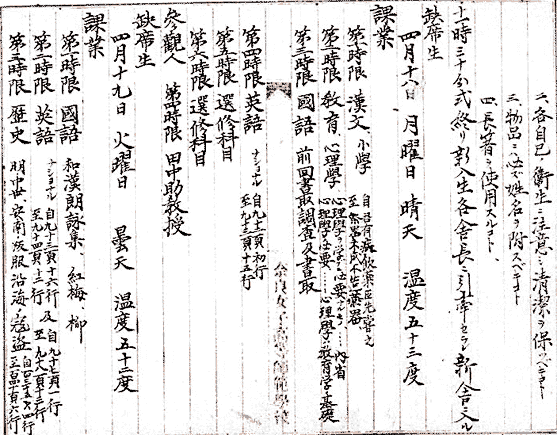 二、各自己ノ衛生ニ注意シ清潔ヲ保ツベキコト
三、物品ニ必ズ姓名ヲ附スベキコト
四、長者ヲ使用スルコト、
十一時三十分式終リ新入生各舎長ニ引率セラレ新舎ニ入ル
缺席生
四月十八日 月曜日 晴天 温度五十三度
課業
第一時限 漢文、小學
自吾有疾飲藥臣先嘗之
至祭器未成不造燕器
第二時限 教育、心理學
心理學ヲ學ブ必要
内省
心理學ノ必要 心理學ハ教育學ノ基礎
第三時限 國語 前回書取調査及書取
第四時限 英語 ナショナル 自九十二頁初行
至九十三頁十五行
第五時限 選修科目
第六時限 選修科目
參觀人 第四時限 田中助教授
缺席生
四月十九日 火曜日 曇天 温度五十二度
課業
第一時限 國語 和漢朗詠集、紅梅、柳
第二時限 英語 ナショナル 自九十三頁十六行 及 自九十七頁一行
至九十四頁十二行 至九十八頁十三行
第三時限 歴史 明中世、安南ノ叛服沿海ノ寇盗